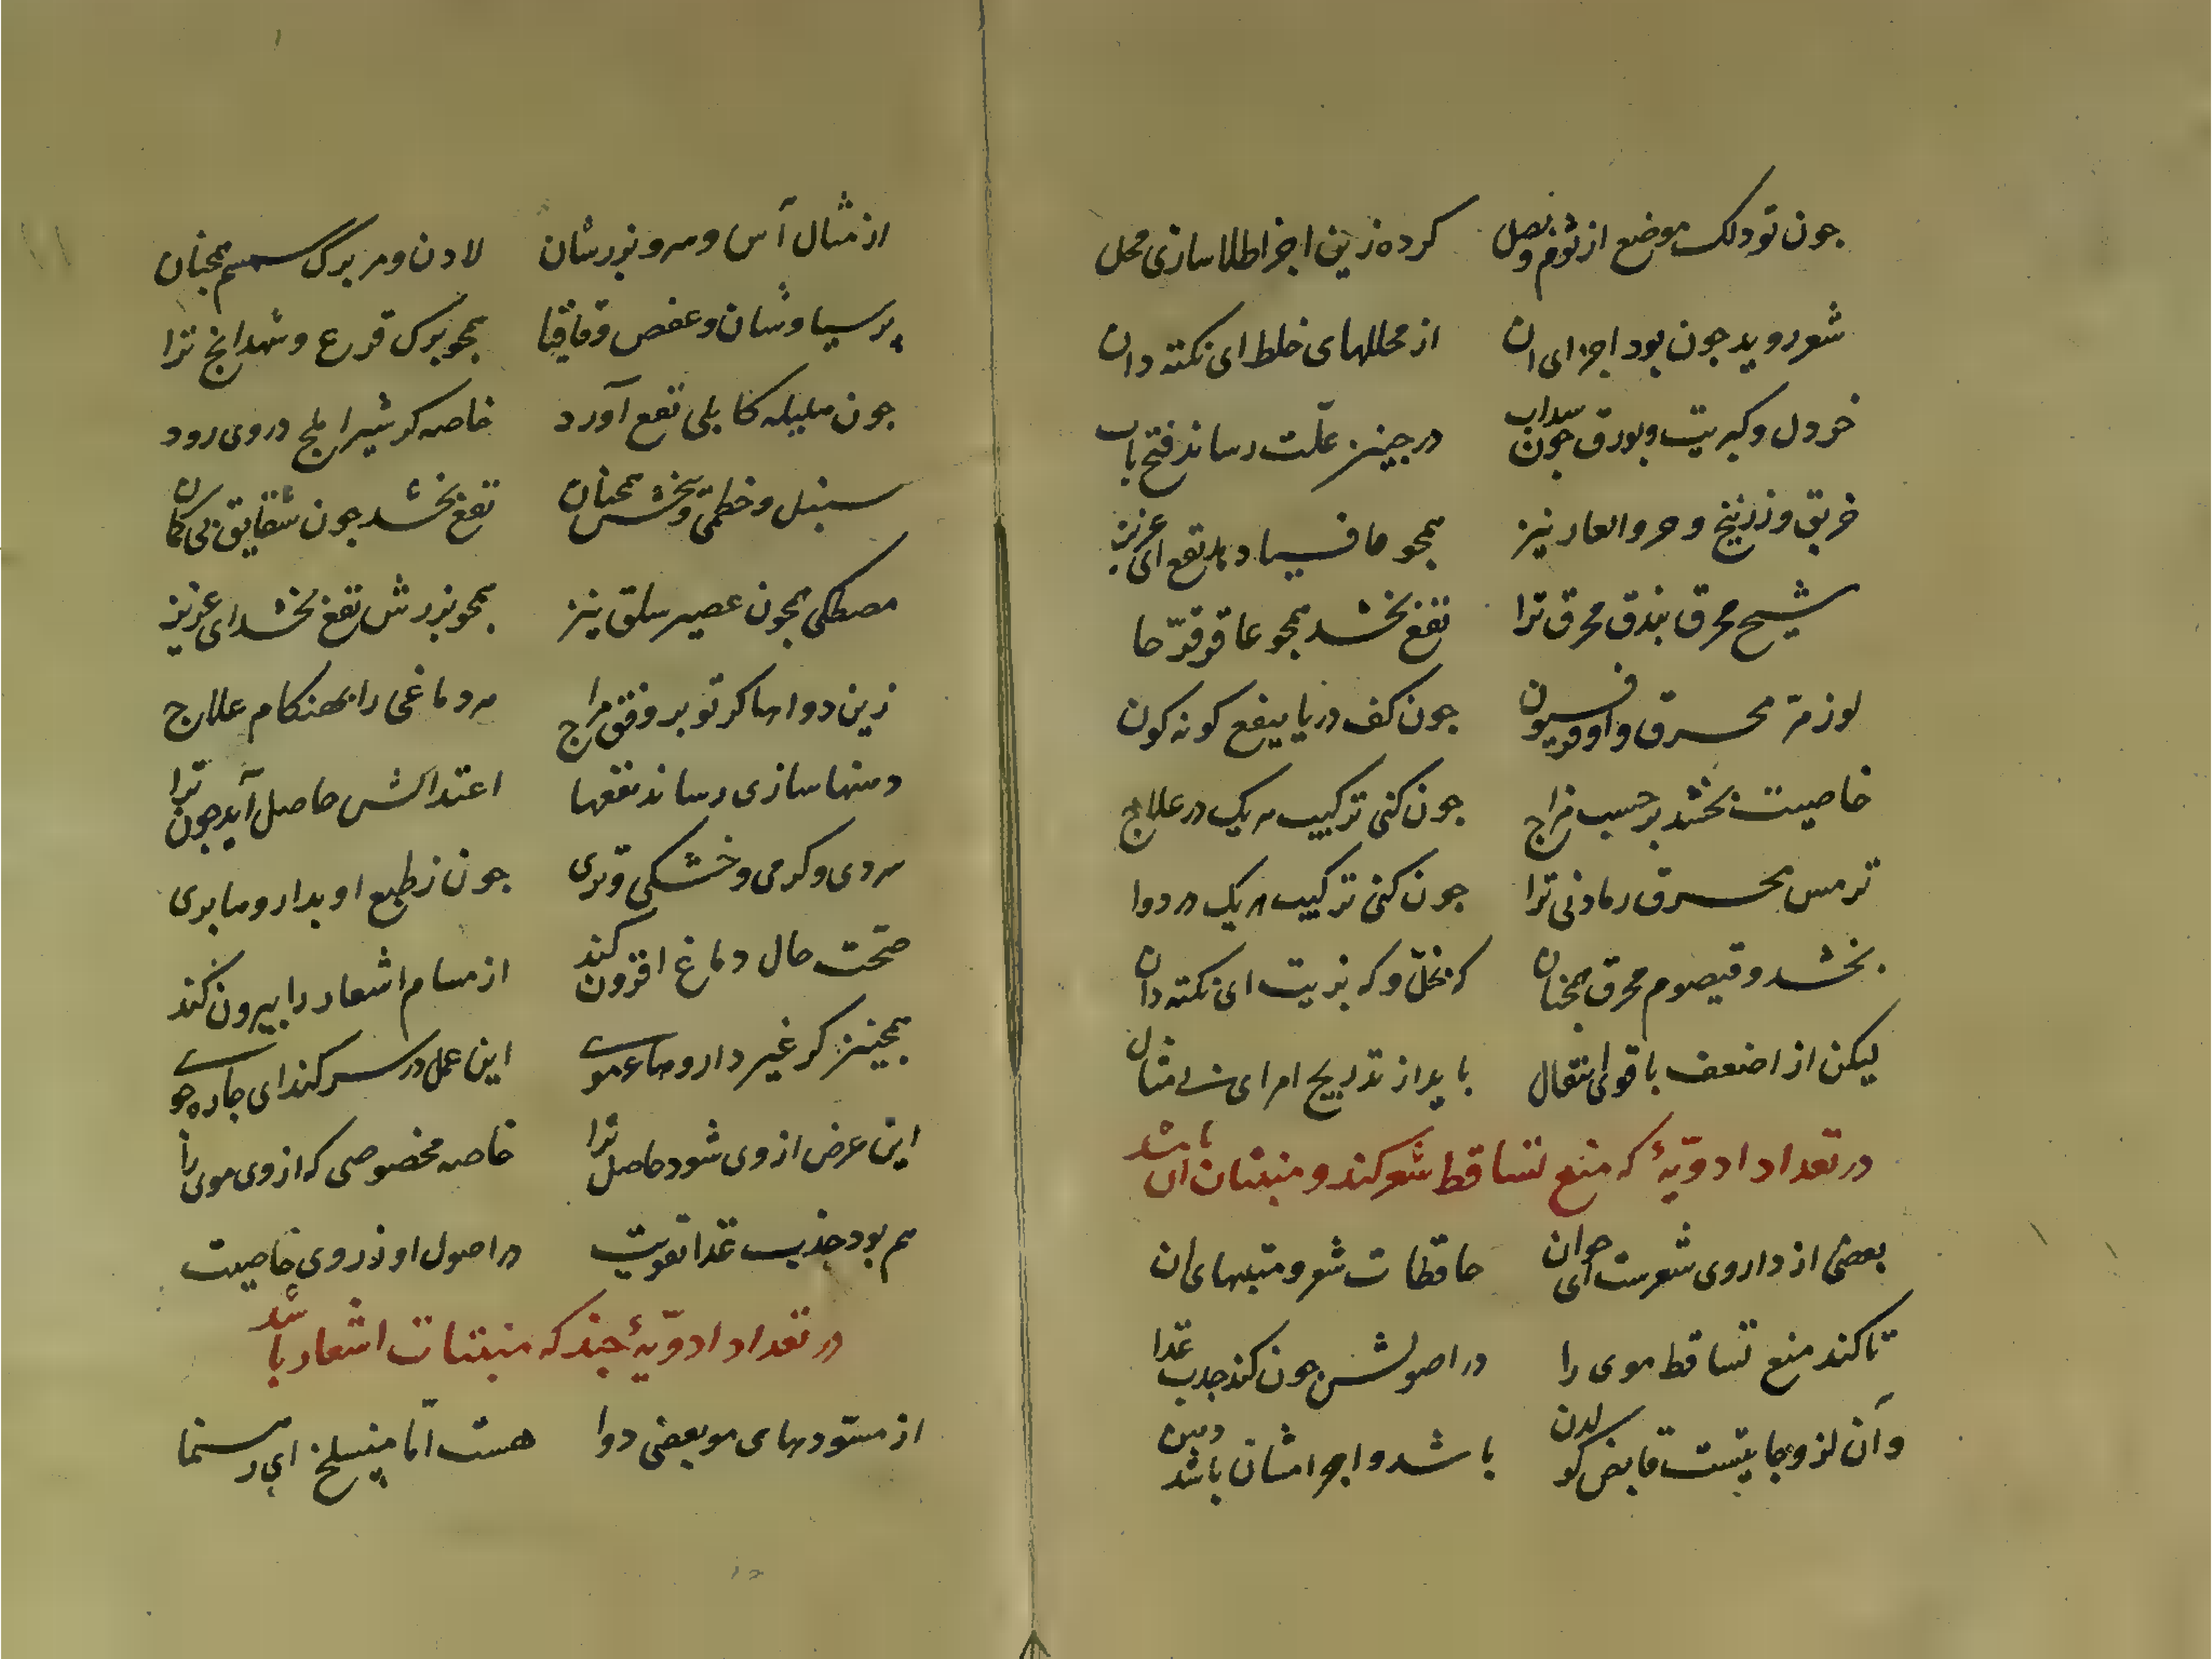 جون تو دلک موضع از ثوم و بصل کرده زین اجزا طلا سازی محل
شعر روید جون بود اجزای ان از محللهای خلط ای نکته دان
خردل و کبریت و بورق جون سداب در جنین علّت رساند فتح باب
خربق و زرنیخ و حرو العار نیز همجو مافسیا دهد نفع ای عزیز
شیح محرق بندق محرق ترا نفع بخشد همجو عاقرقرّحا
لوز مرّ محرق و اوفربیون جون کف دریا بنفع کونه کون
خاصیت بخشد بر حسب مزاج جون کنی ترکیب هر یک در علاج
ترمس محرق رمادنی ترا جون کنی ترکیب هر یک در دوا
بخشد و قیصوم محرق همجنان که بخلّ و که بزیت ای نکته دان
لیکن از اضعف باقوی انتقال باید از تدریج امر ای بی مثال
در تعداد ادویّهٔ که منع تساقط شعر کند و منبتان ان باشد
بعضی از داروی شعرست ای جوان حافظات شعر و منبتهای ان
تا کند منع تساقط موی را در اصولش جون کند جذب غذا
و آن لزوجاتیست قابض کو لدن باشد و اجزامشان باشد دهین
از مثال آس و سرو و بزرشان لادن و مر برک سمسم همجنان
پرسیاوشان و عفص و قاقیا همجو برک قرع و شهدانج ترا
جون هلیله کابلی نفع آورد خاصه کر شیر املج در وی رود
سنبل و خطمی و بخشش همجنان نفع بخشد جون شقایق بی کمان
مصطکی همجون عصیر سلق نیز همجو بزرش نفع بخشد ای عزیز
زین دواها کر تو بر وفق مزاج هر دماغی را بهنکام علاج
دهنها سازی رساند نفعها اعتدالش حاصل آید جون ترا
سردی و کرمی و خشکی و تری جون ز طبع او بداروها بری
صحّت حال دماغ افزون کند از مسام اشعار را بیرون کند
همجنین کر غیر داروها عموے این عمل در سر کند ای جاره جوے
این عرض از وی شود حاصل ترا خاصه مخصوصی که از وی موی را
هم بود جذب غذا تقویت در اصول او ز روی خاصیت
در تعداد ادویّهٔ جند که منبتات اشعار باشد
از مسوّدهای مو بعضی دوا هست امّا منسلخ ای رهنما